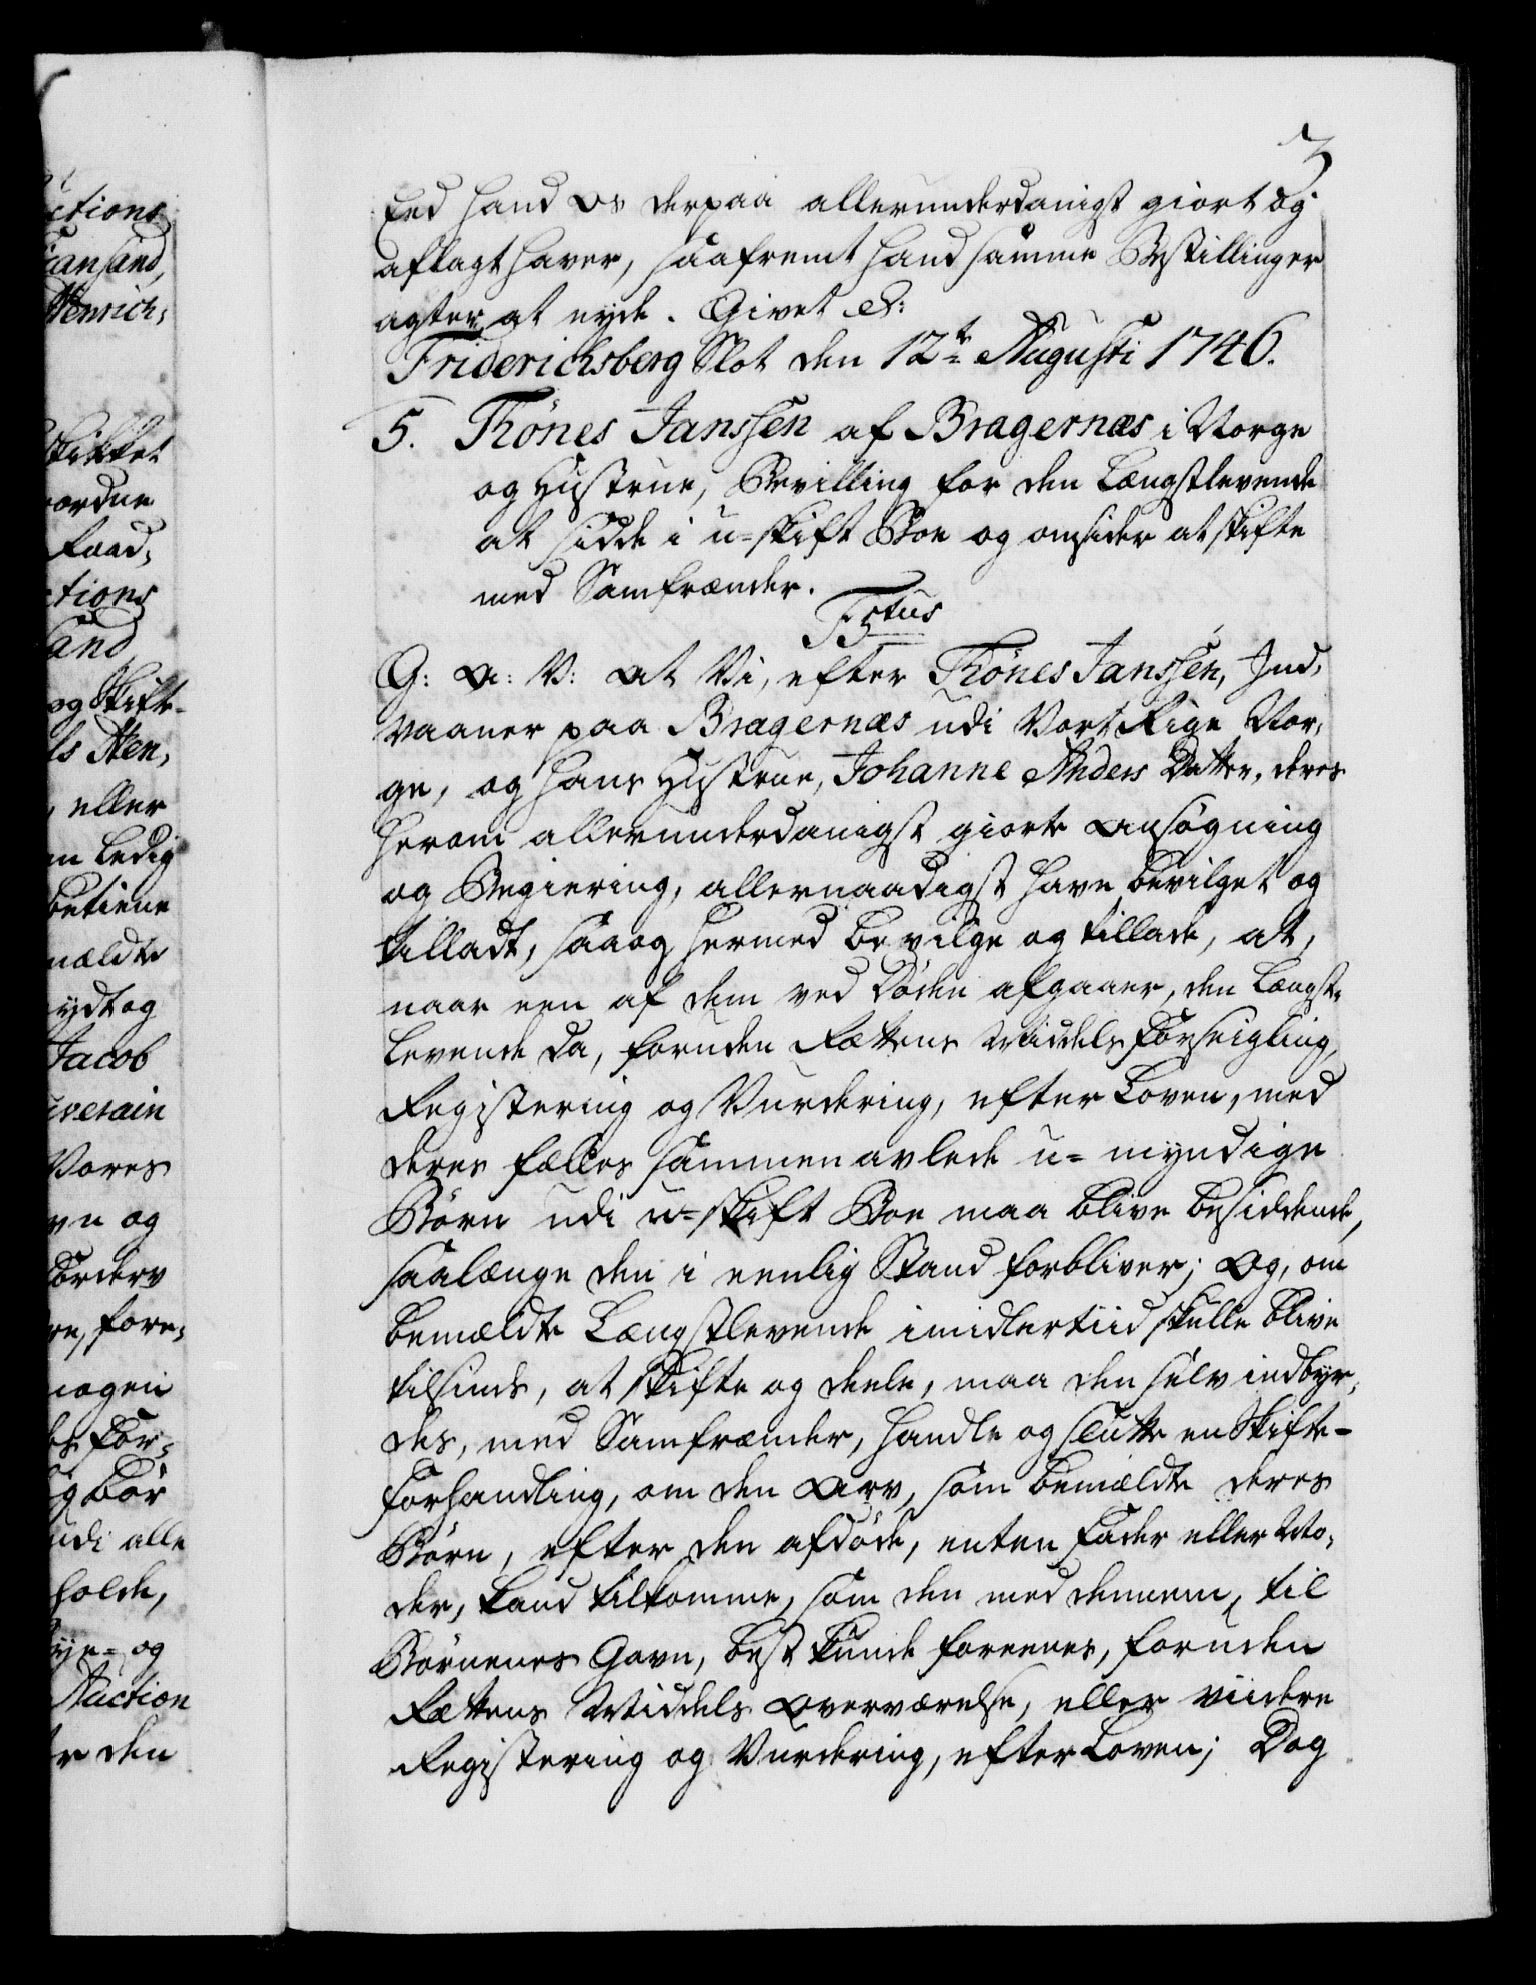 3
Eed hand os derpaa allerunderdanigst giort og
aflagt haver, saafremt hand samme Bestillinger
agter at nyde. Givet &:
Friderichsberg Slot den 12t Augusti 1746.
5. Thönes Janssen af Bragernæs i Norge
og Hustrue, Bevilling for den Længstlevende
at sidde i u-skift Boe og omsider at skifte
med Samfrænder.
F5tus
G: A: V: At Vi, efter Thönes Janssen, Ind,
vaaner paa Bragernæs udi Vort Rige Nor,
ge, og hans Hustrue, Johanne Anders Datter, deres
herom allerunderdanigst giorte Ansøgning
og Begiering, allernaadigst have bevilget og
tilladt, saa og hermed bevilge og tillade, at,
naar een af dem ved Døden afgaaer, den Længst,
levende da, foruden Rettens Middels Forseigling,
Registering og Vurdering, efter Loven, med
deres fælles sammenavlede u-myndige
Børn udi u-skift Boe maa blive besiddende,
saalænge den i eenlig Stand forbliver; Og, om
bemældte Længstlevende imidlertiid skulle blive
tilsinds, at skifte og deele, maa den selv indbyr,
des, med Samfrænder, handle og slutte en Skifte-
Forhandling, om den Arv, som bemældte deres
Børn, efter den afdøde, enten Fader eller Mo,
der, kand tilkomme, som den med dennem, til
Børnenes Gavn, best kunde foreenes, foruden
Rettens Middels Overværelse, eller viidere
Registering og Vurdering, efter Loven; Dog
ctions
iansand,
Henrich,
skikket
ordne
ctions
and
og Skifte-
ls Hen,
, eller
n ledig
betiene
mældte
ydt og
Jacob
uverain
Vores
vn og
Forderv
re, fore,
nogen
For-
g bør
udi alle
holde,
ye- og
Auction
r den